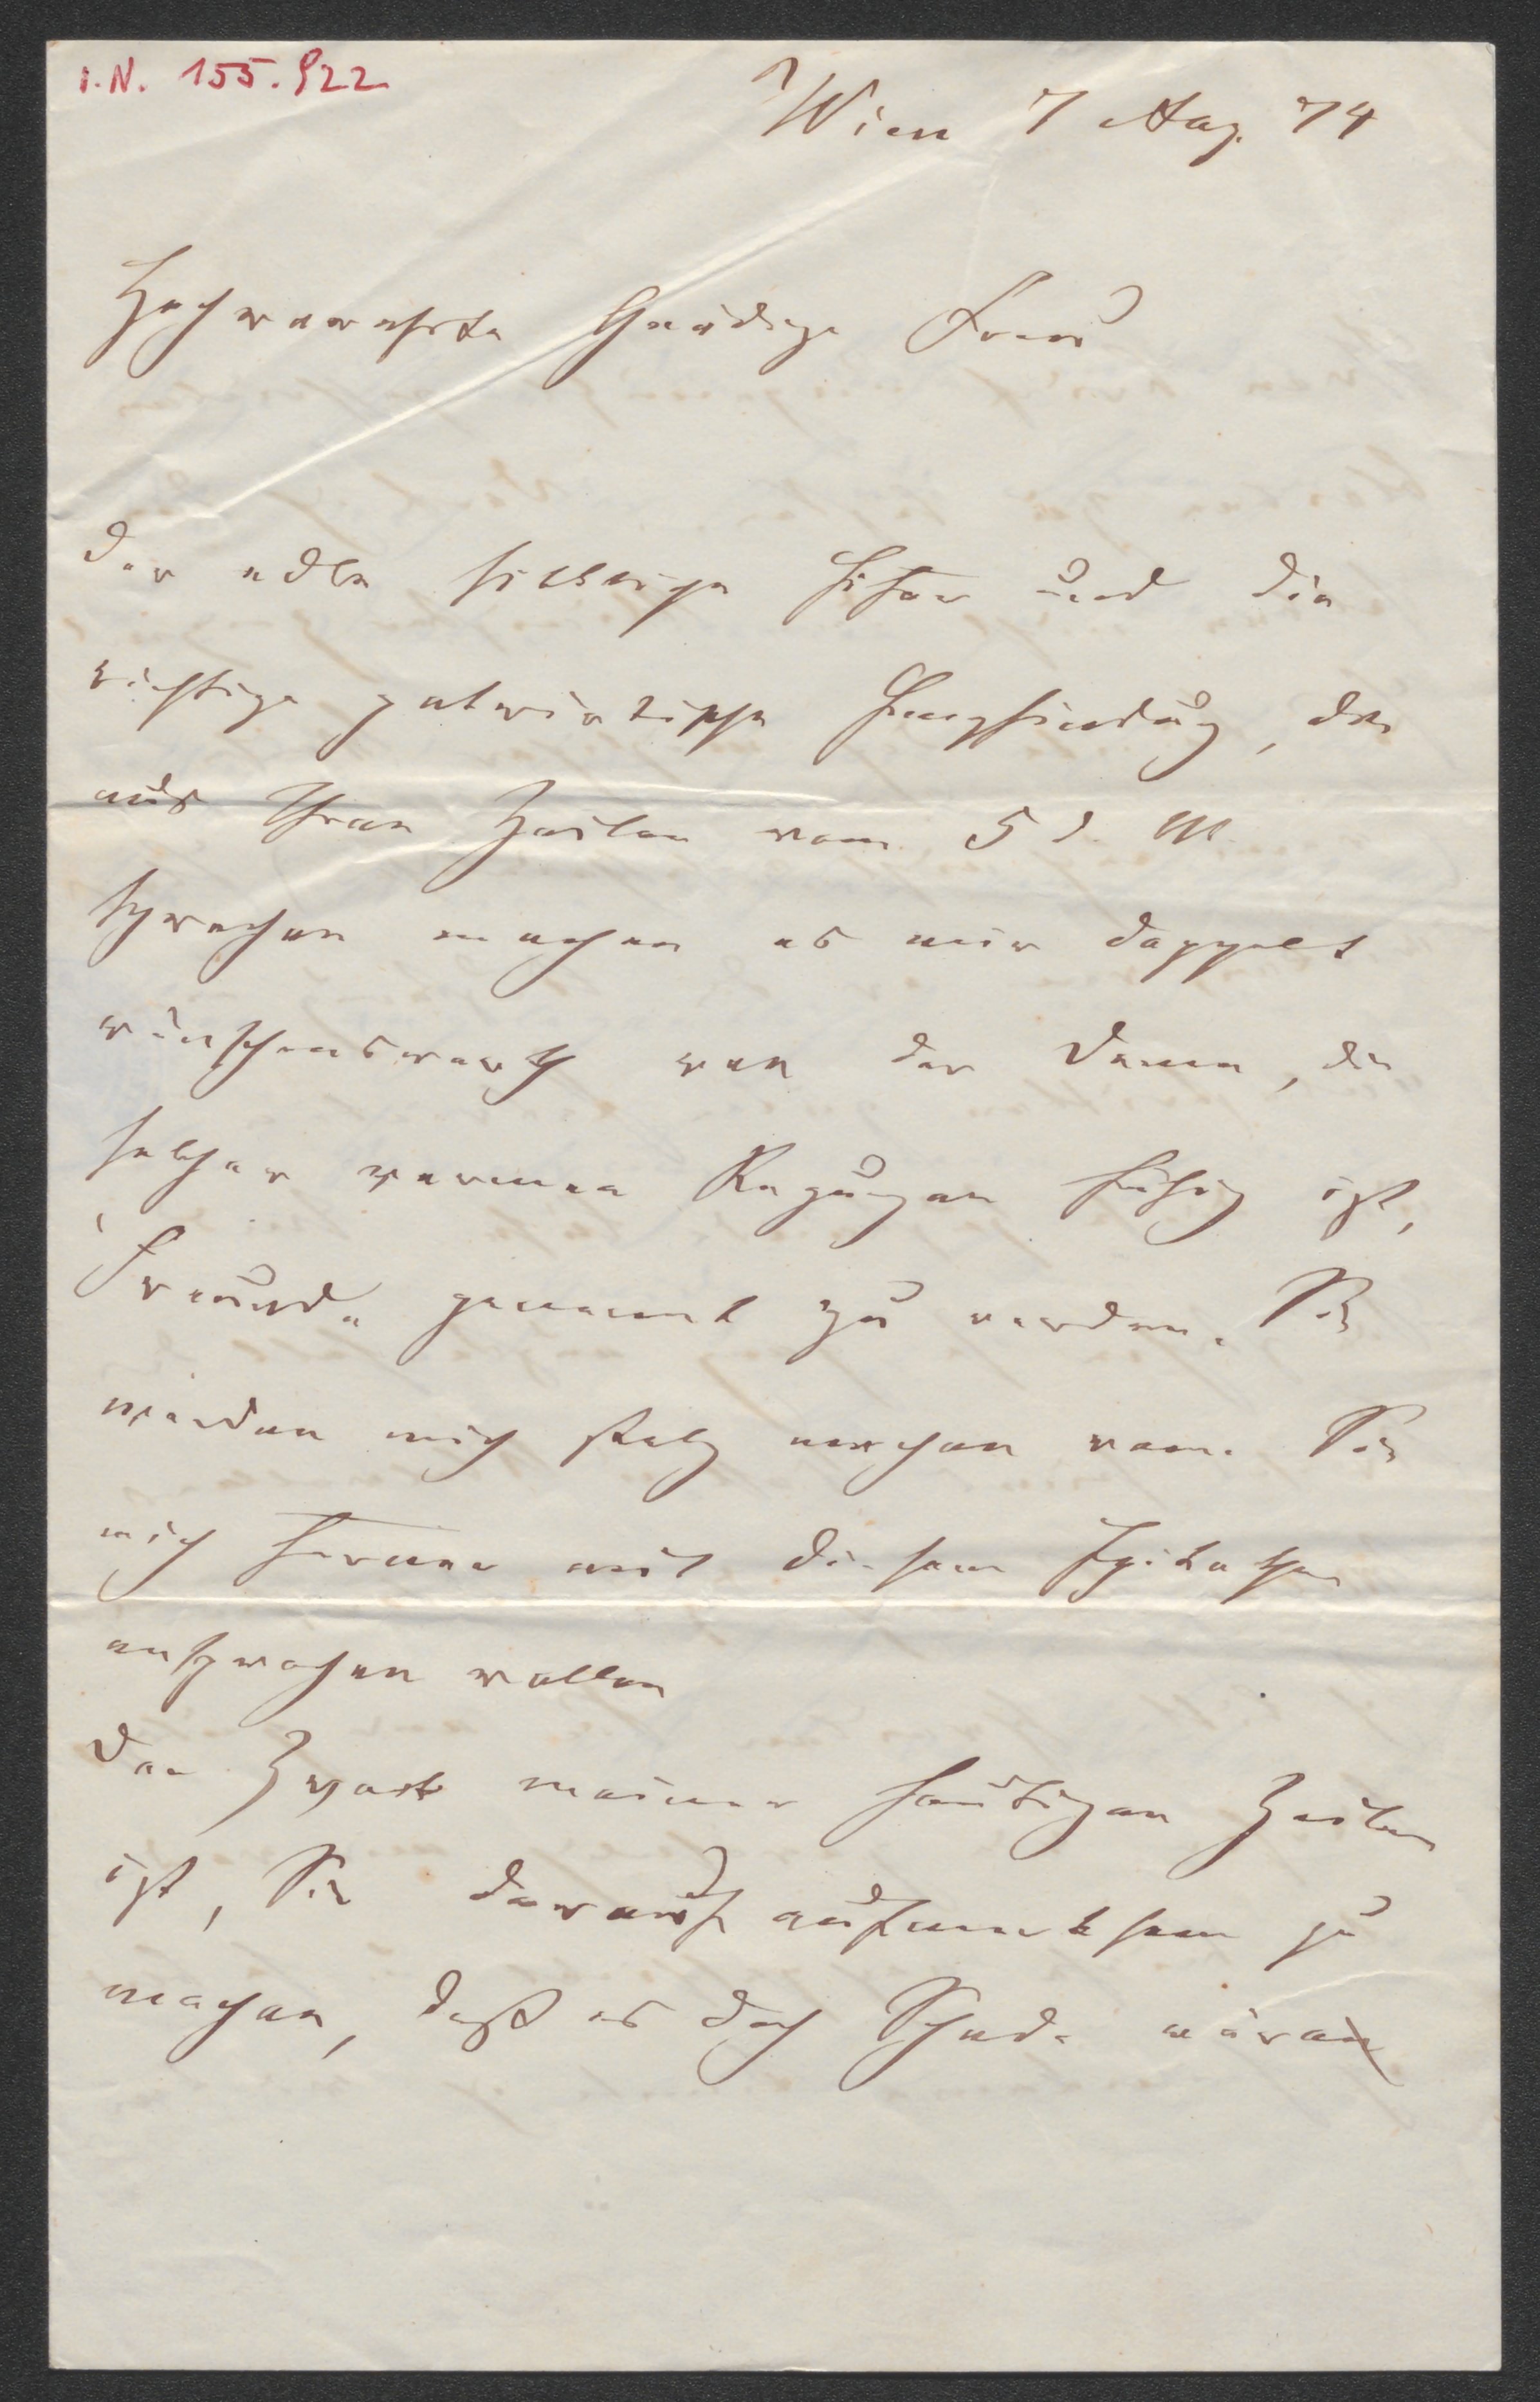 I.N. 155.922
Wien 7 Aug. 74
Hochverehrte Gnädige Frau
Der edle sittliche Eifer und die
richtige patriotische Empfindung, die
aus Ihren Zeilen vom 5 d. M.
sprechen machen es mir doppelt
wünschenswerth von der Dame, die
solcher warmen Regungen fähig ist,
Freund genannt zu werden. Sie
würden mich stolz machen wenn Sie
mich ferner mit diesem Epitheton
ansprechen wollen
Der Zweck meiner heutigen Zeilen
ist, Sie darauf aufmerksam zu
machen, daß es doch Schade wäre